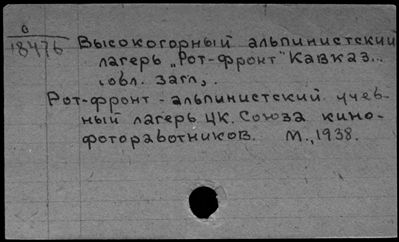 о
18476
Высокогорный альпинистский
лагерь „Рот-фронт" Кавказ...
/обл. загл,.
Рот-фронт - альпинистский учеб-
ный лагерь ЦК. Союза кино-
фотоработников. М., 1938.